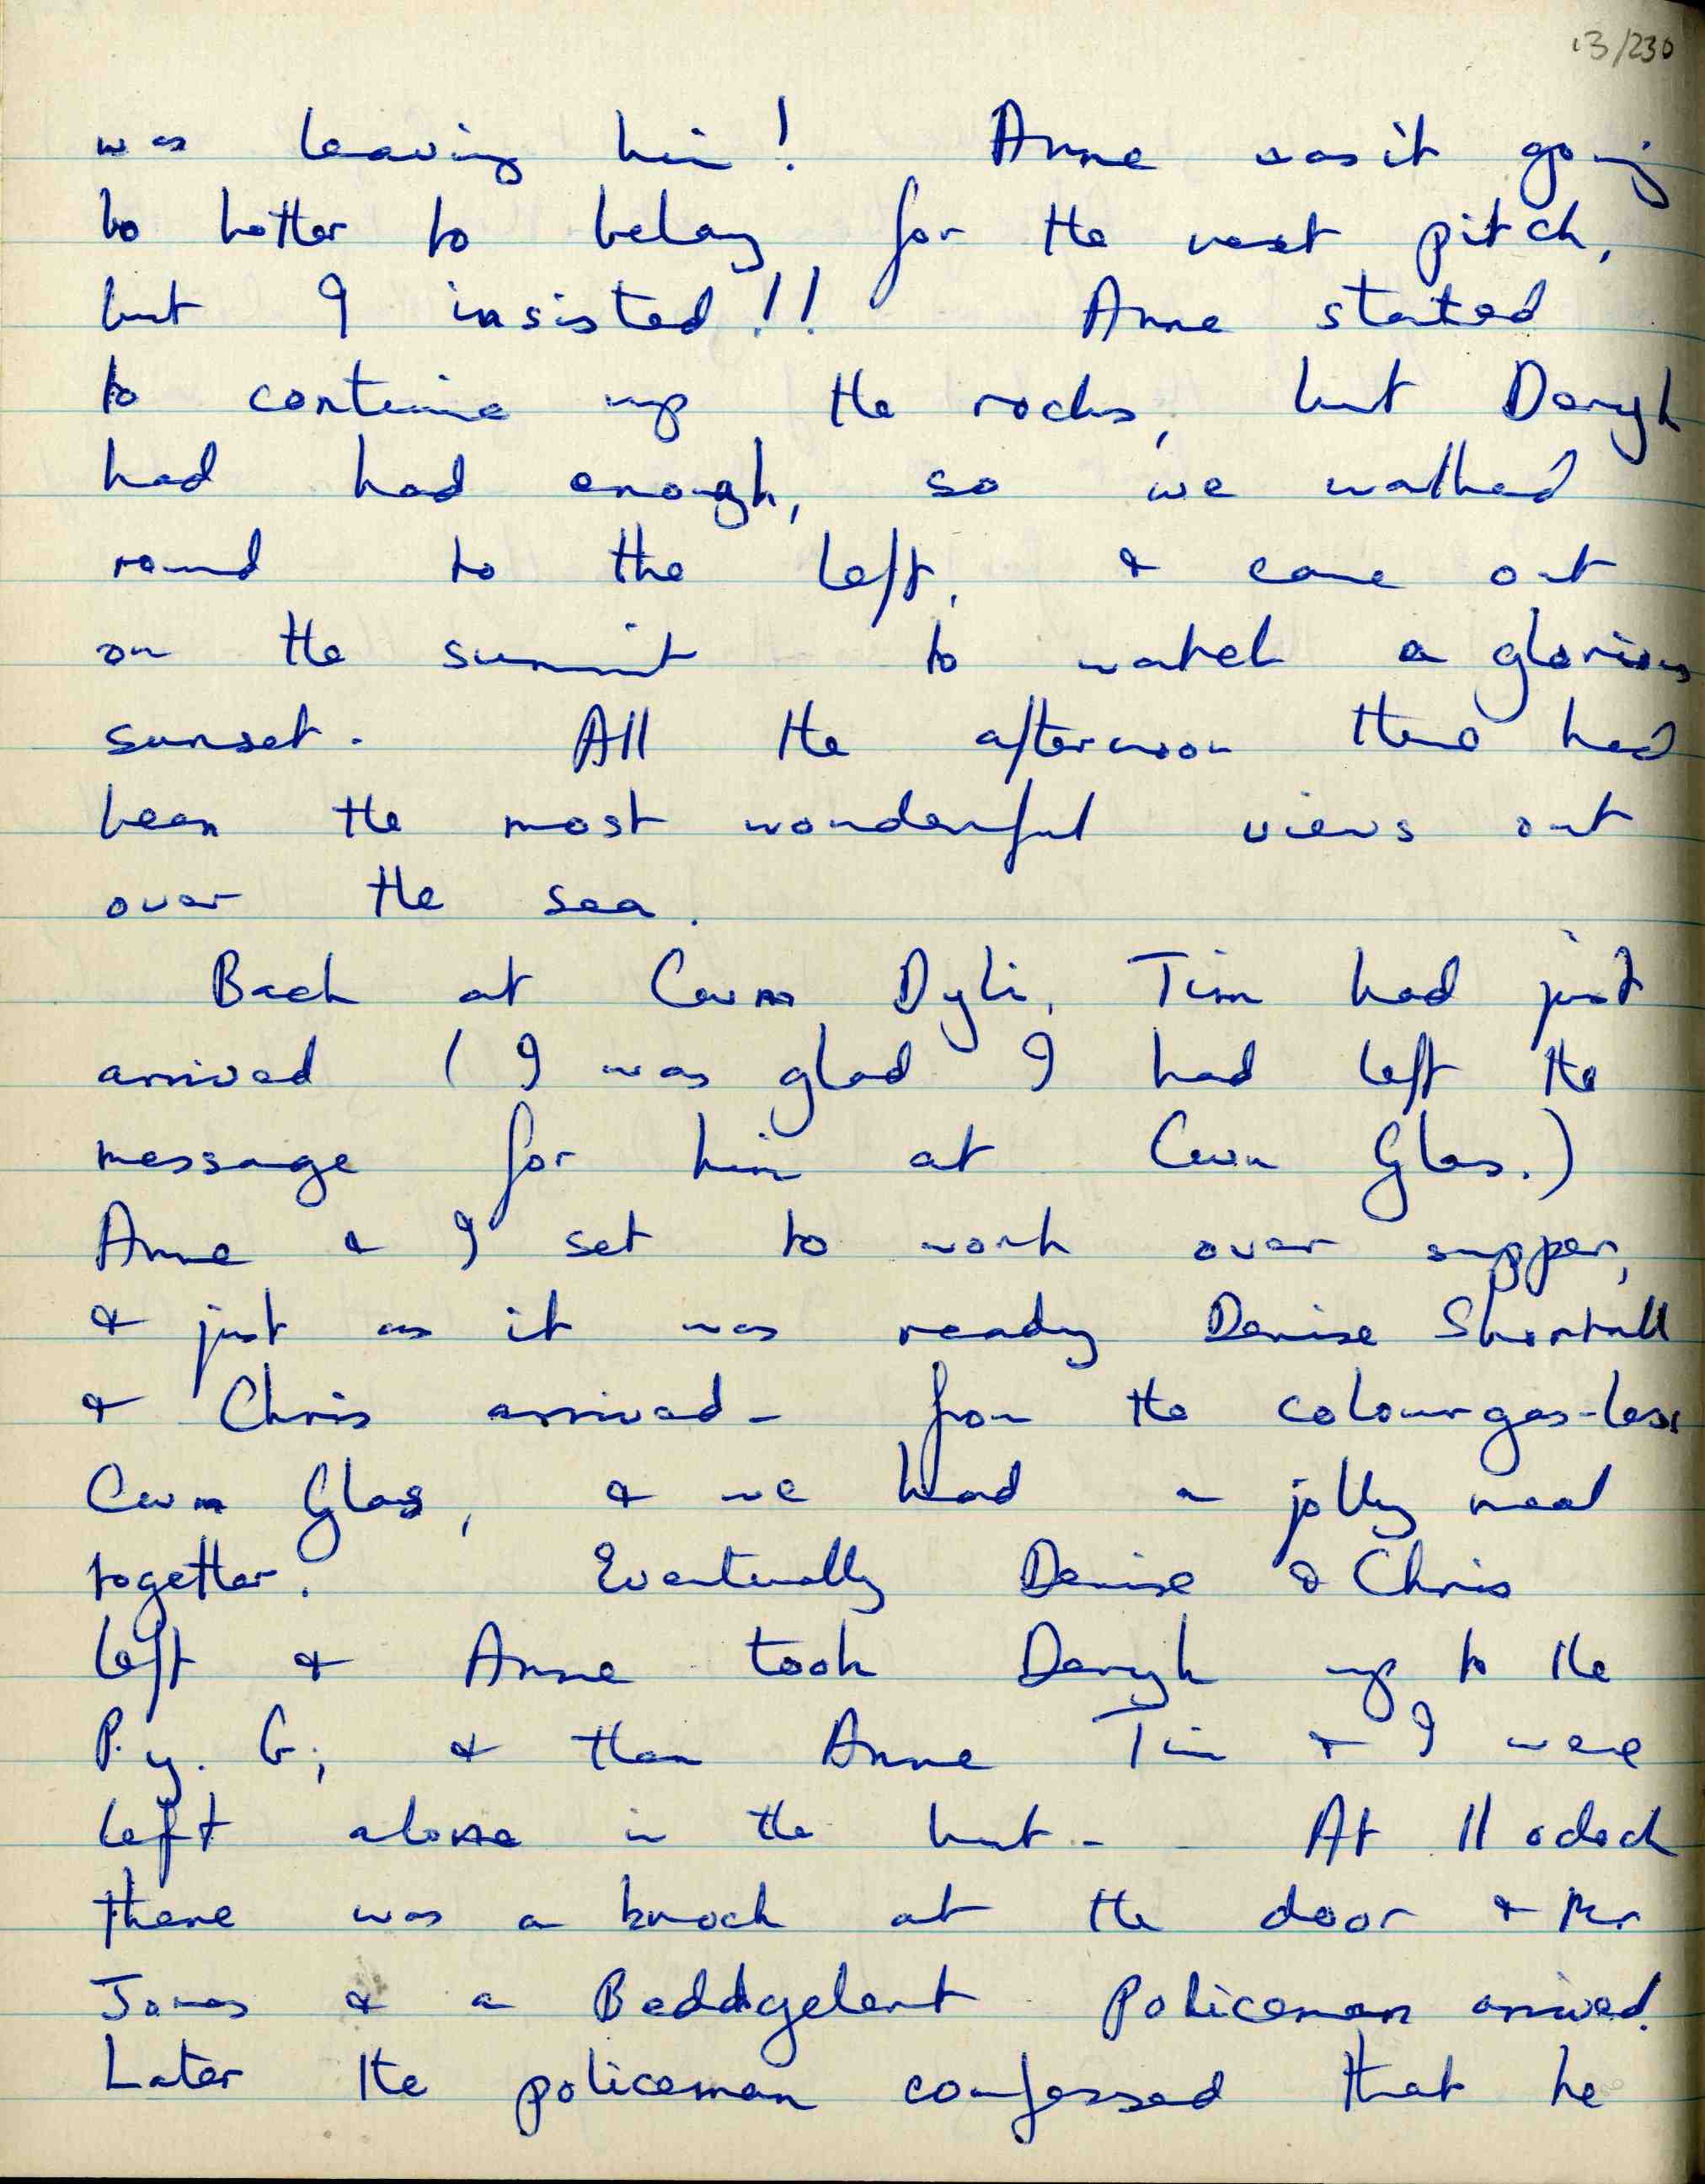 13/230
was leaving him! Anne wasn't going
to bother to belay for the next pitch,
but I insisted!! Anne started
to continue up the rocks, but Deryk
had had enough, so we walked
round to the left, & came out
on the summit to watch a glorious
sunset. All the afternoon there had
been the most wonderful views out
over the sea.
Back at Cwm Dyli, Tim had just
arrived (I was glad I had left the
message for him at Cwm Glas.)
Anne & I set to work over supper,
& just as it was ready Denise Shortall
& Chris arrived - from the colourgas-less
Cwm Glas, & we had a jolly meal
together. Eventually Denise & Chris
left & Anne took Deryk up to the
P. y. G; & then Anne Tim & I were
left alone in the hut - At 11 oclock
there was a knock at the door & Mr
Jones & a Beddgelert Policeman arrived.
Later the policeman confessed that he